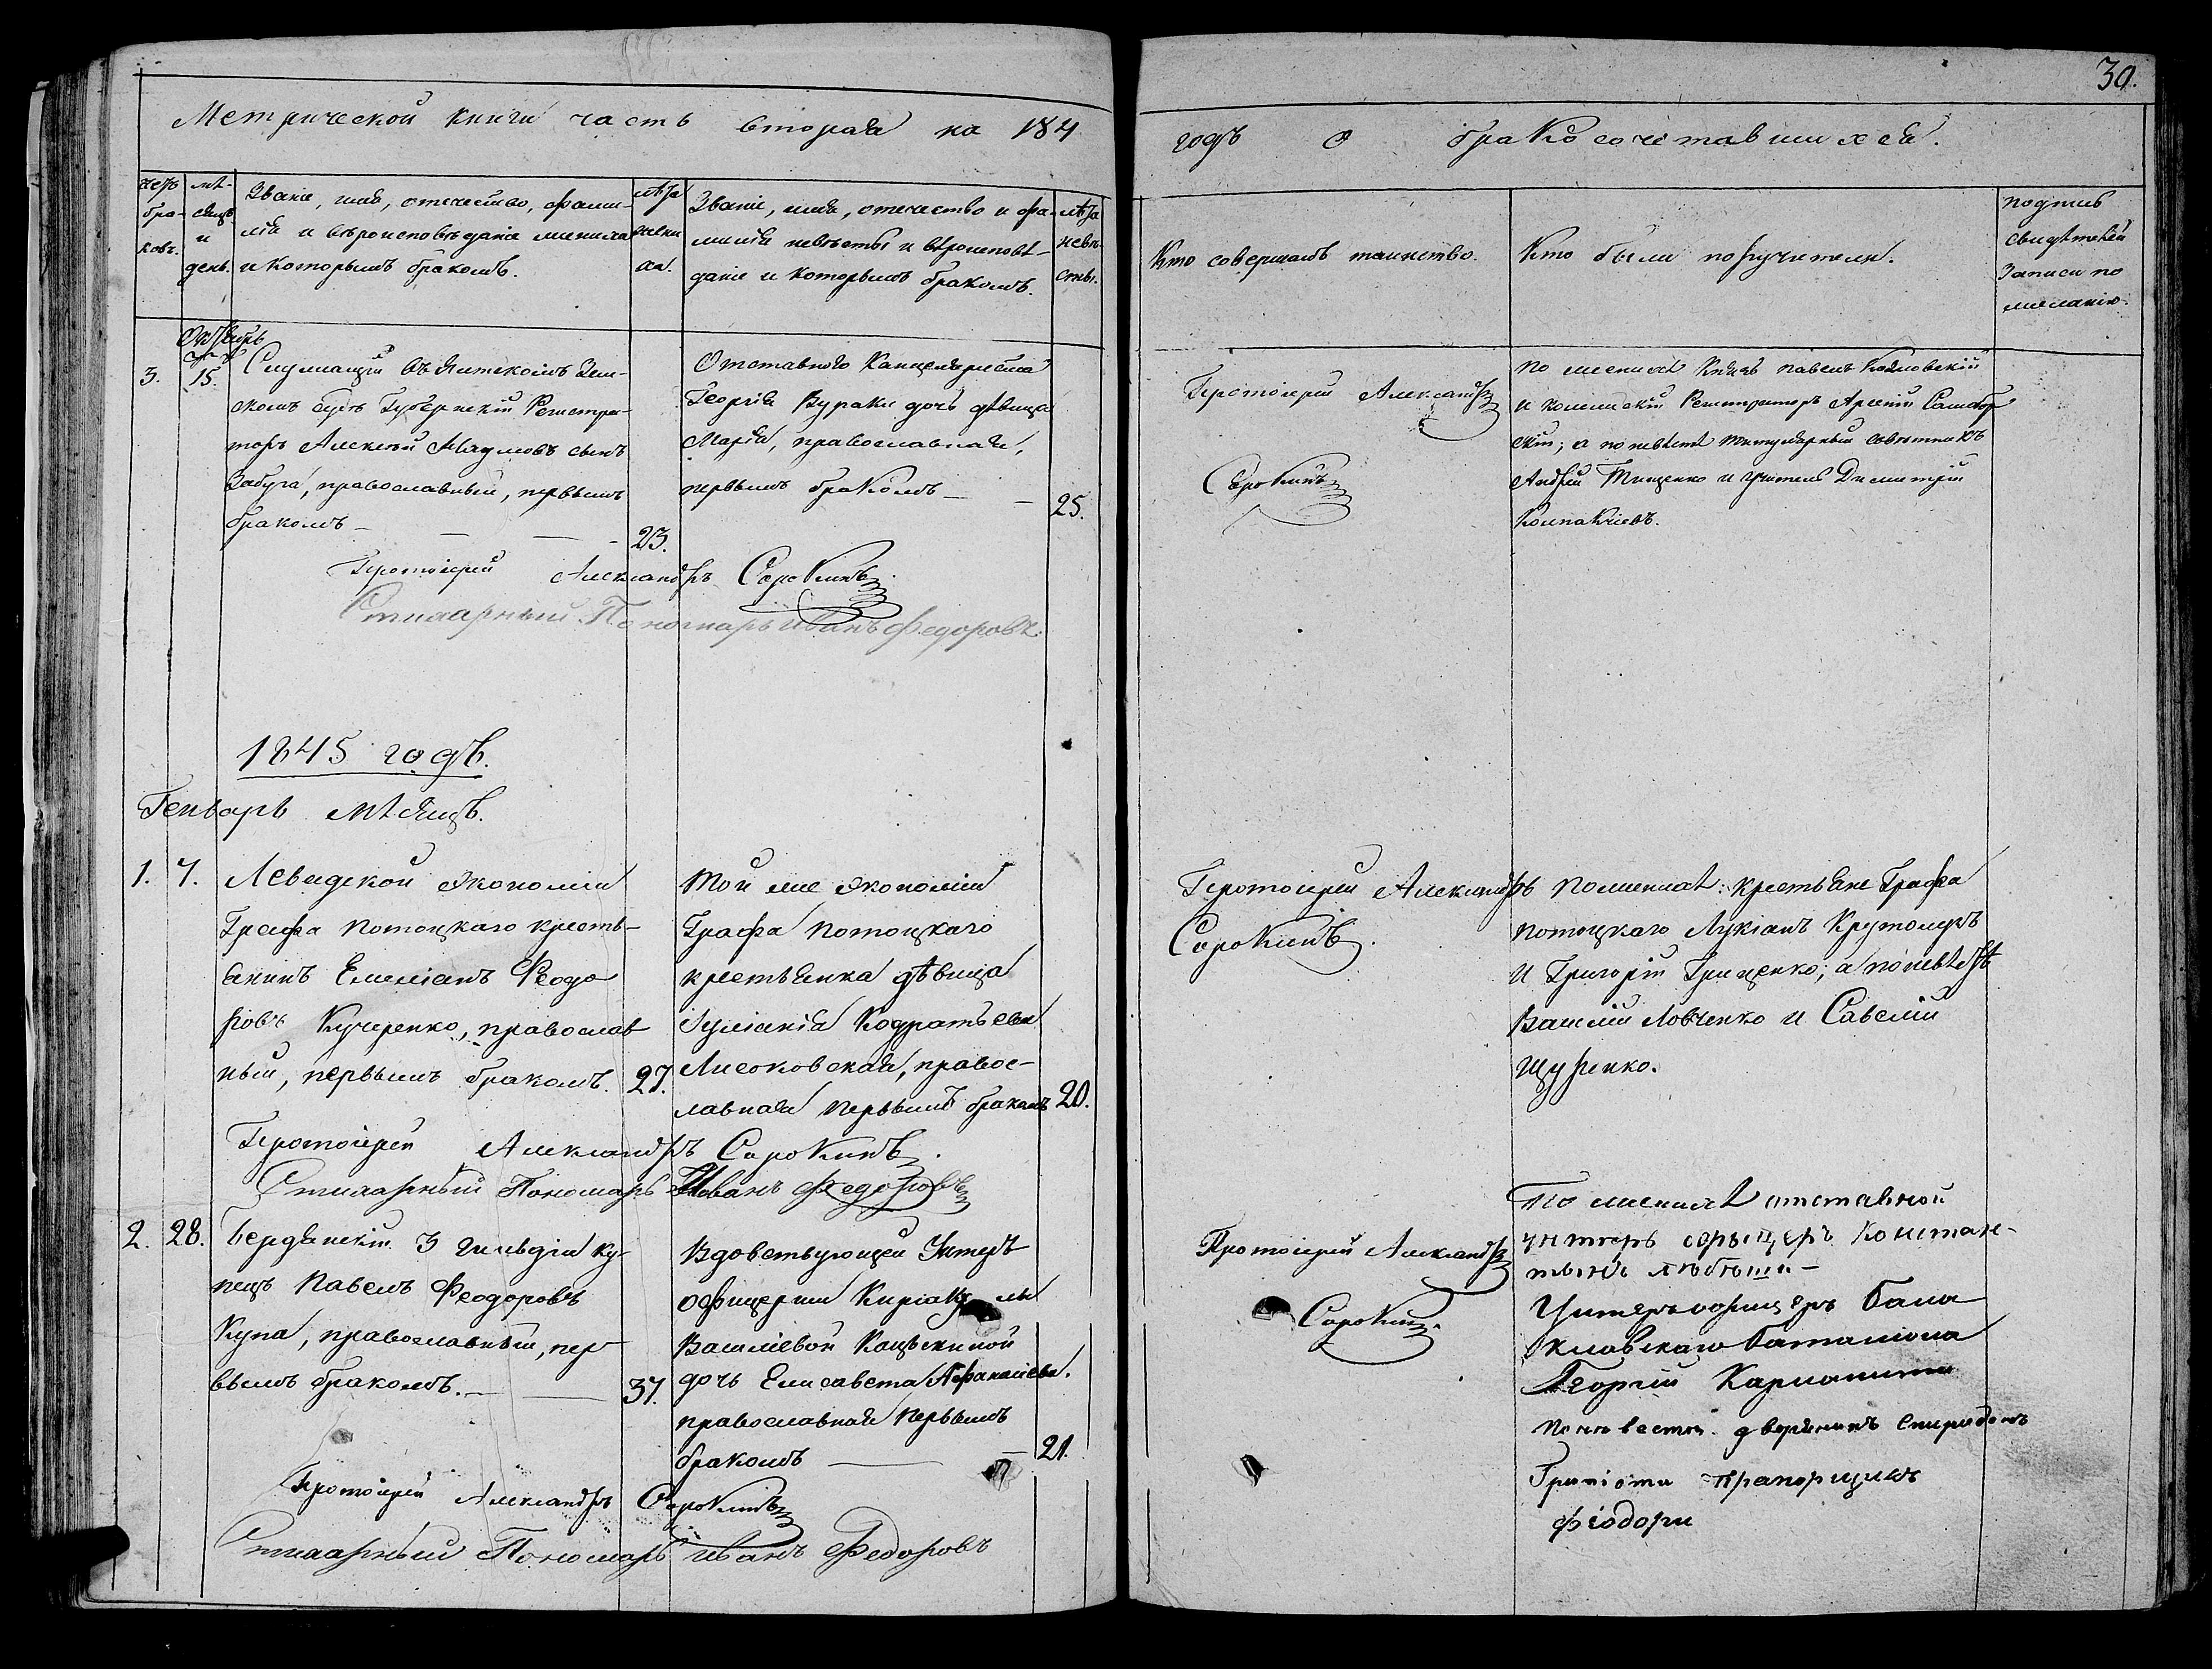 30.
Метрической книги часть вторая на 184
годъ о бракосочетавшихся.
Счетъ браковъ.
мѣ-
сяцъ
и
день.
Званіе, имя, отечество, фами-
лія и вѣроисповѣданіе жениха
и которымъ бракомъ.
лѣта
жени
ха.
Званіе, имя, отечество и фа-
милія невѣсты и вѣроисповѣ-
даніе и которымъ бракомъ.
лѣта
невѣ-
сты.
Кто совершалъ таинство.
Кто были поручители.
подпись
свидѣтелей
записи по
желанію.
Октябрь
3.
15.
Служащій въ Ялтскомъ Зем-
скомъ Судѣ Губернскій Регистра-
торъ Алексѣй сынъ
Забуга, православный, первымъ
бракомъ —
23.
Отставного Канцеляриста
Георгія Вураки дочь дѣвица
Марія, православная,
первымъ бракомъ —
25.
Протоіерей Александръ
Сорокинъ
По женихѣ Князь Павелъ
и коллежскій Регистраторъ Арсеній Самбор
скій; а по невѣстѣ титулярный совѣтникъ
Андрей Тищенко и учитель Димитрій
Колпакчіевъ.
Протоіерей Александръ Сорокинъ.
Стихарный Пономарь Иванъ Федоровъ.
1845 годъ.
Генварь мѣсяцъ.
1. 7.
Левадской Экономіи
Графа Потоцкаго кресть-
янинъ Емеліанъ Феодо
ровъ Кучеренко, православ
ный, первымъ бракомъ.
27.
Той же Экономіи
Графа Потоцкаго
крестьянка дѣвица
Іуліанія Кодратьева
Лисоковская, правос-
лавная первымъ бракомъ
20.
Протоіерей Александръ
Сорокинъ.
По женихѣ: крестьяне Графа
Потоцкаго Лукіанъ Крутомеръ
и Григорій Гриценко; а по невѣстѣ
Василій Ловченко и Савелій
Щуренко.
Протоіерей Александръ Сорокинъ.
Стихарный Пономарь Иванъ Федоровъ
2. 28.
Бердянскій 3 гильдіи ку-
пецъ Павелъ Феодоровъ
Купа, православный, пер
вымъ бракомъ. —
37.
Вдовствующей Унтеръ
офицерши
Василіевой
дочь Елисавета Афанасіева.
православная первымъ
бракомъ —
21.
Протоіерей Александръ
Сорокинъ.
По женихѣ отставной
унтеръ офицеръ Констан-
тинъ
Унтеръ офицеръ Бала
клавскаго баталіона
Георгій
По невѣсты. дворянинъ Спиридонъ
Прапорщикъ
Феодори
Протоіерей Александръ Сорокинъ
Стихарный Пономарь Иванъ Федоровъ